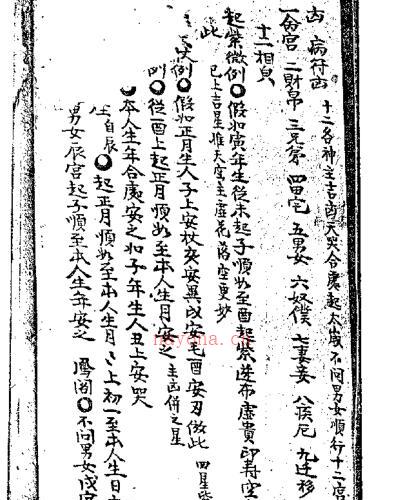 凶 病符凶 十二各神主吉凶天哭合處起太歲不問男女順行十二宮
一命宮 二財帛 三兄弟 四田宅 五男女 六奴僕 七妻妾 八疾厄 九迁移
十二相貌
起紫微例〇假如寅年生從未起子順數至酉起紫迸布虛貴印壽空
此 已上吉星惟天虛主虛花落空更妙
例〇假如正月生人子上安杖夾安異戌安毛酉安刃倣此 四星皆
〇從酉上起正月順數至本人生月安之 主凶併之星
〇本人生年合處安之如子年生人丑上安哭
生自辰〇起正月順數至本人生月々上初一至本人生日
男女辰宮起子順至本人生年安之 鳳閣〇不問男女戌宮
nayona.cn